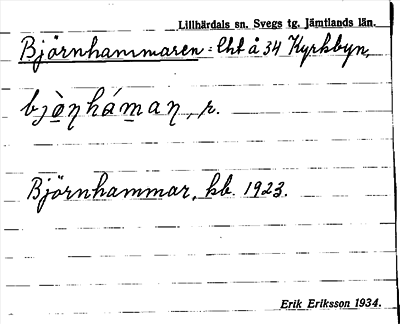 Lillhärdals sn. Svegs tg. Jämtlands län.
Björnhammaren: Lht å 34 Kyrkbyn,
bjò̤ŋháman, r.
Björnhammar, kb. 1923.
Erik Eriksson 1934.